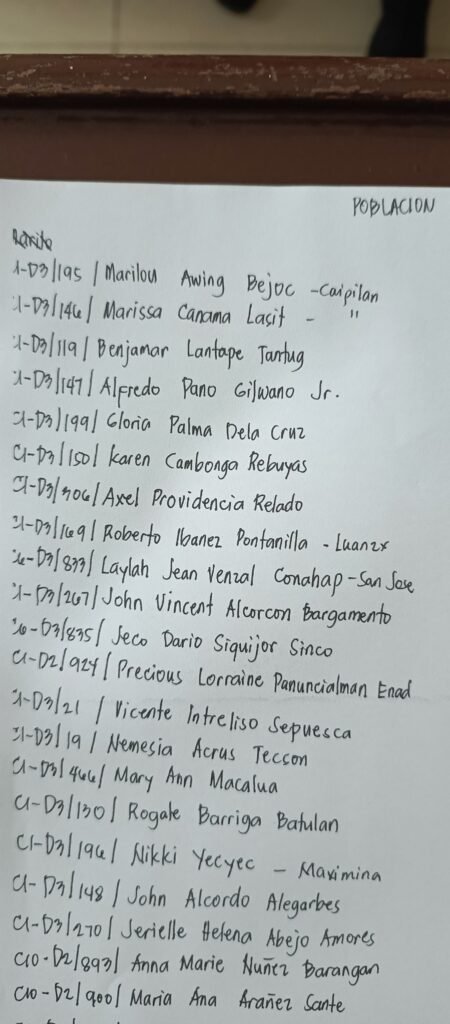 POBLACION
C1-D3/195 / Marilou Awing Bejoc - Caipilan
C1-D3/146 / Marissa Canama Lasit - "
C1-D3/119 / Benjamar Lantape Tantug
C1-D3/147 / Alfredo Pano Gilwano Jr.
C1-D3/199 / Gloria Palma Dela Cruz
C1-D3/150 / Karen Cambonga Rebuyas
C1-D3/306 / Axel Providencia Relado
C1-D3/169 / Roberto Ibanez Pontanilla - Luanzx
D3/833 / Laylah Jean Venzal Conahap - San Jose
C1-D3/267 / John Vincent Alcorcon Bargamento
D3/835 / Jeco Dario Siquijor Sinco
C1-D2/924 / Precious Lorraine Panuncialman Enad
C1-D3/21 / Vicente Intreliso Sepuesca
C1-D3/19 / Nemesia Acrus Tecson
C1-D3/466 / Mary Ann Macalua
C1-D3/130 / Rogate Barriga Batulan
C1-D3/196 / Nikki Yecyec - Maximina
C1-D3/148 / John Alcordo Alegarbes
C1-D3/270 / Jerielle Helena Abejo Amores
C10-D2/893 / Anna Marie Nuñez Barangan
C10-D2/900 / Maria Ana Arañez Sante